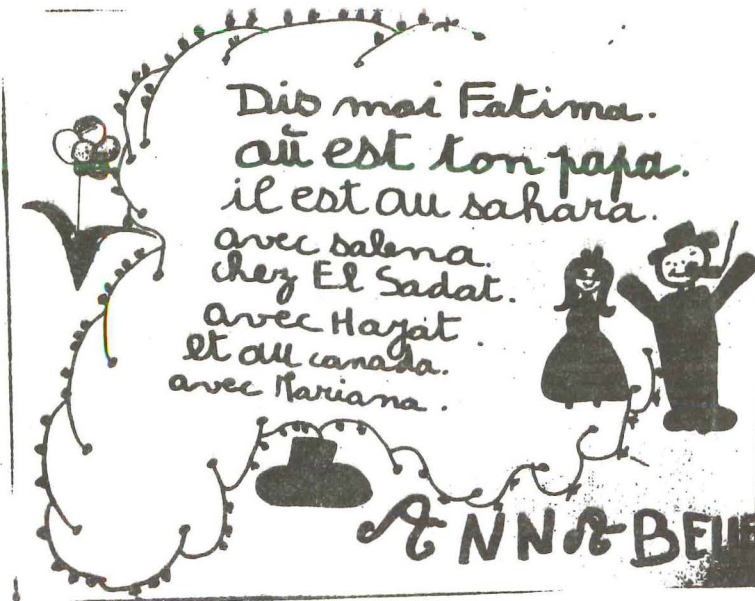 Dis moi Fatima.
où est ton papa.
il est au sahara.
avec salena.
chez El Sadat.
avec Hayat.
et au canada.
avec Mariana.
ANNABELLE